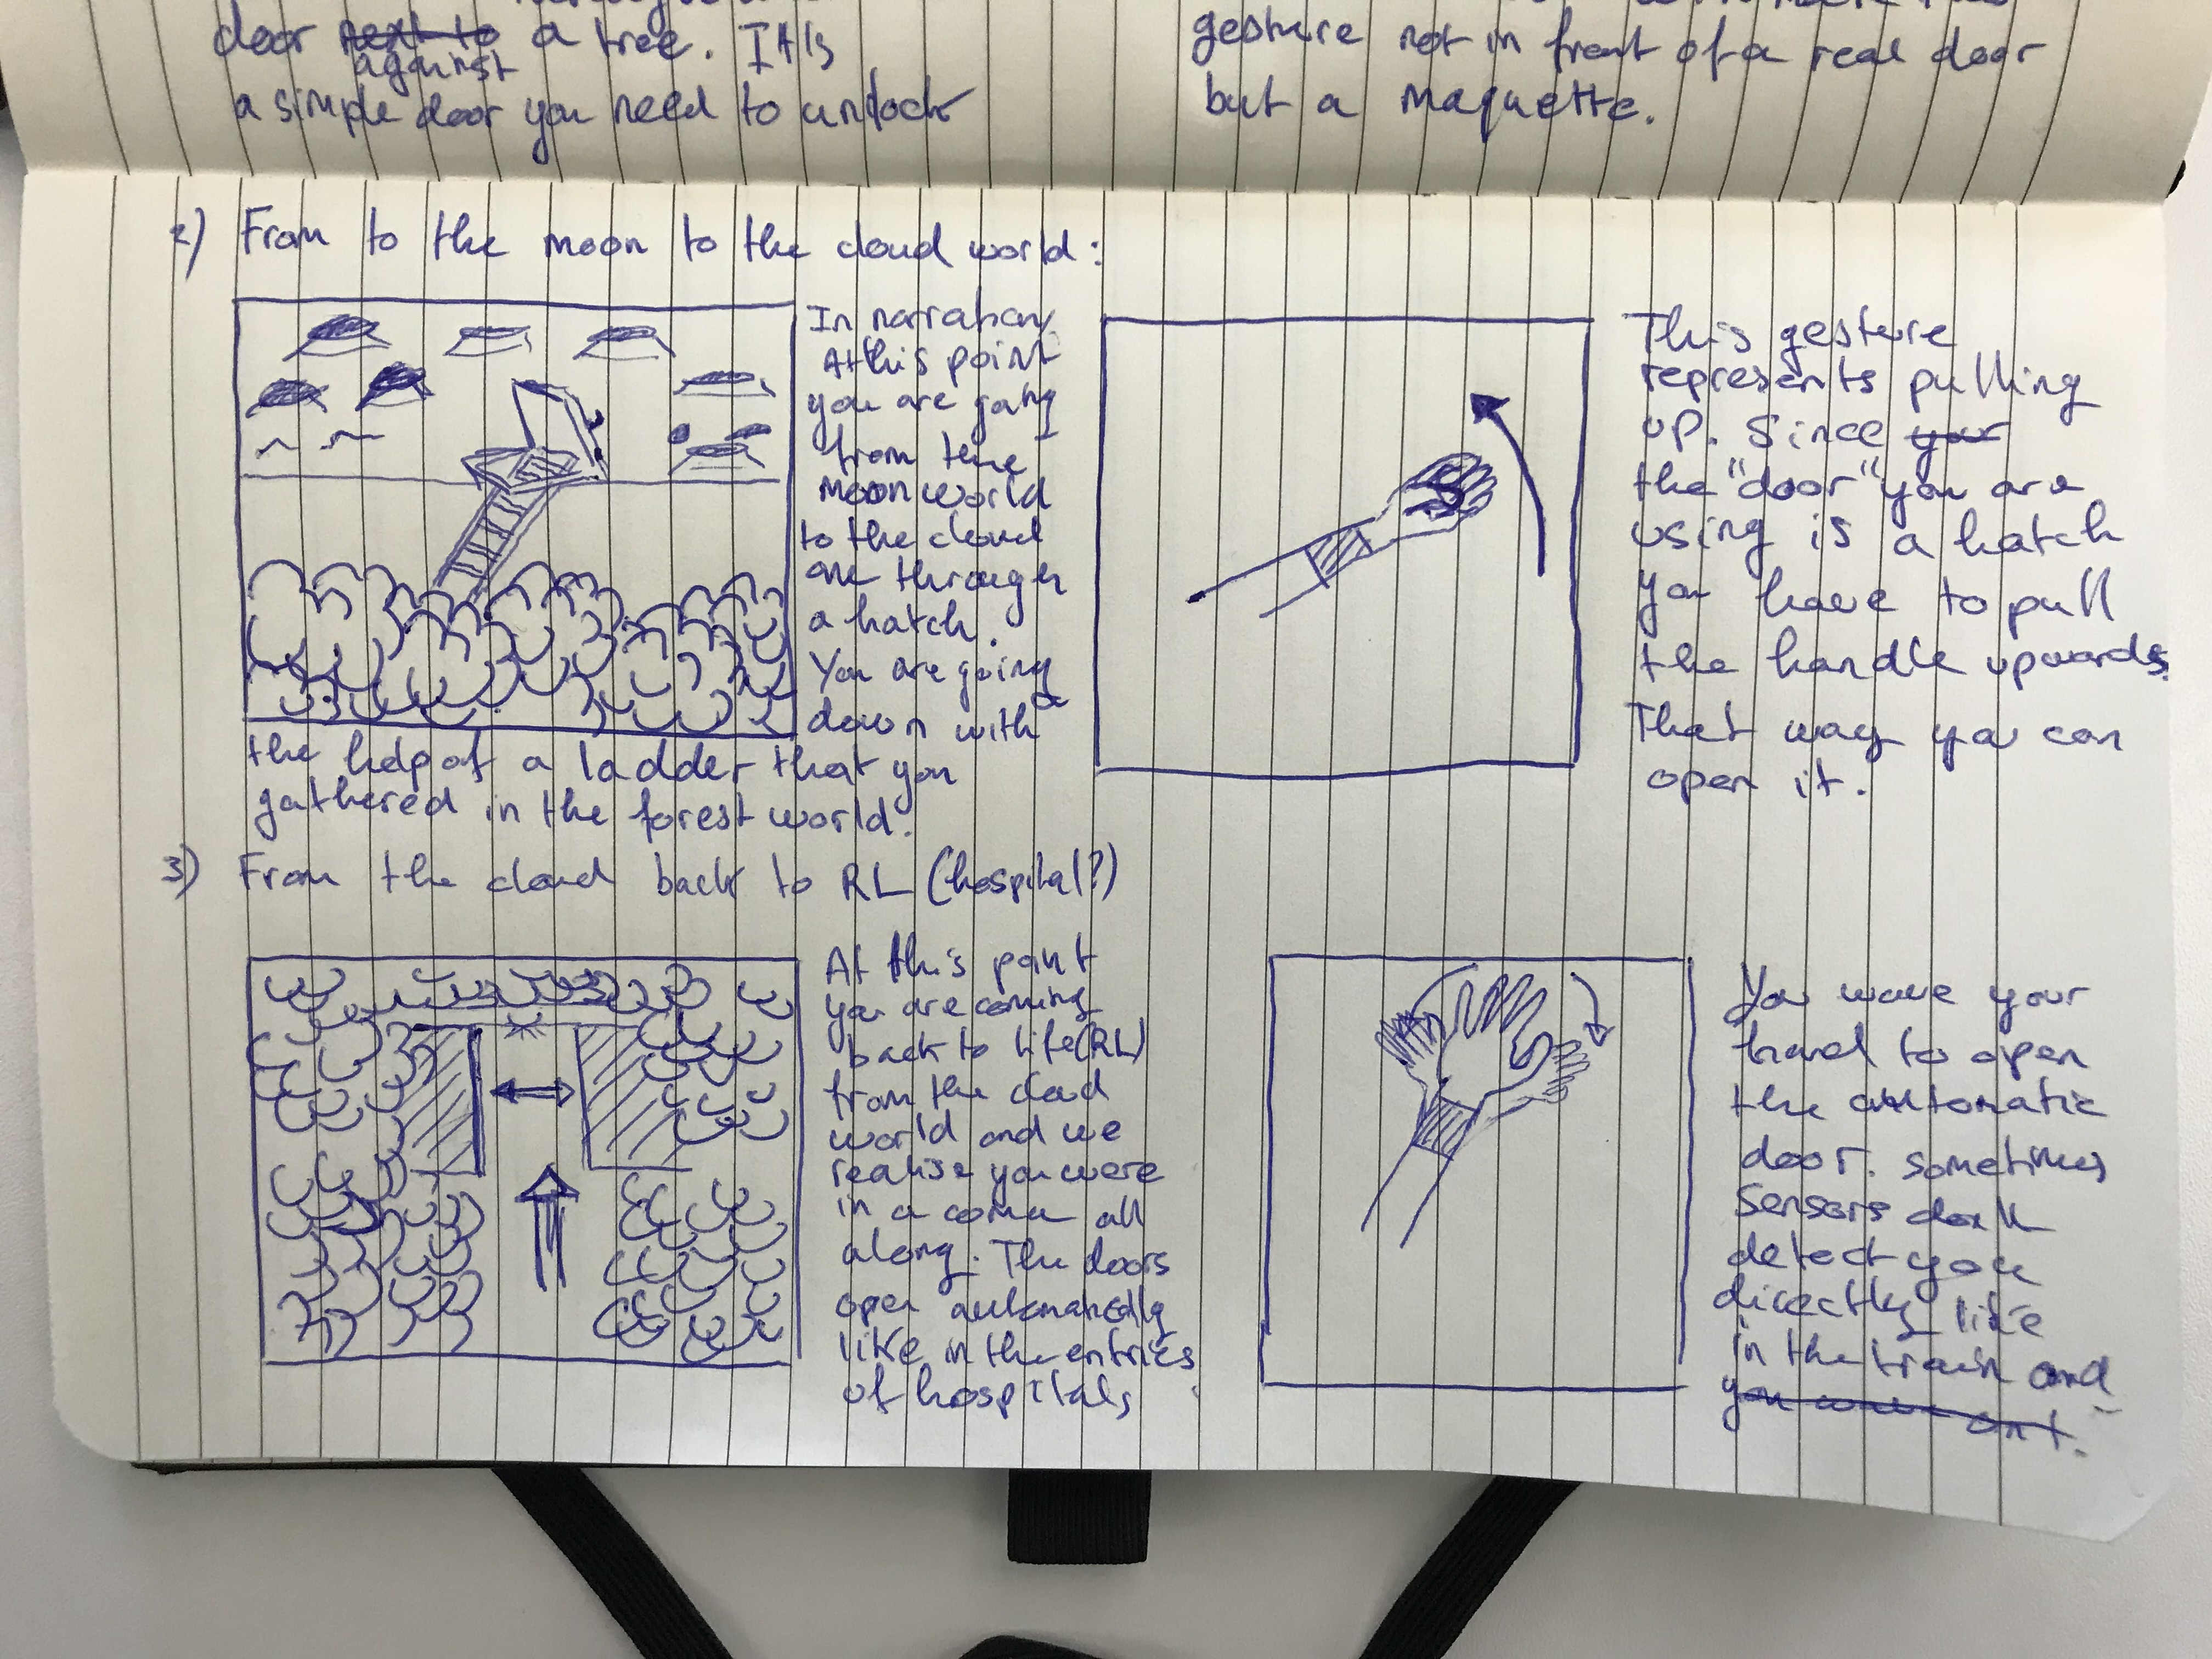 door next to a tree. This
against
a simple door you need to unlock
gesture not in front of a real door
but a maquette.
2) From to the moon to the cloud world:
In narration
At this point
you are going
from the
moon world
to the cloud
one through
a hatch.
You are going
down with
the help of a ladder that you
gathered in the forest world.
This gesture
represents pulling
up. Since your
the "door" you are
using is a hatch
you have to pull
the handle upwards.
That way you can
open it.
3) From the cloud back to RL (hospital?)
At this point
you are coming
back to life (RL)
from the cloud
world and we
realise you were
in a coma all
along. The doors
open automatically
like in the entries
of hospitals.
You wave your
hand to open
the automatic
door. Sometimes
sensors don't
detect you
directly like
in the train and
you